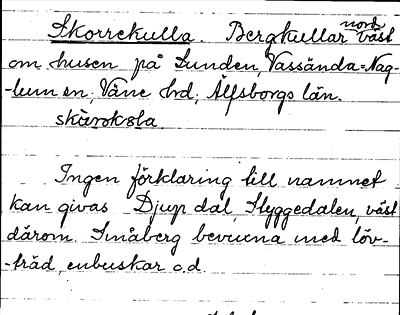 Skorrekulla. Bergkullar nordväst
om husen på Lunden, Vassända-Nag-
-lum sn; Väne hd; Älfsborgs län.
skàrokəla
Ingen förklaring till namnet
kan givas Djup dal, Styggedalen, väst
därom. Småberg bevuxna med löv-
-träd, enbuskar o.d.